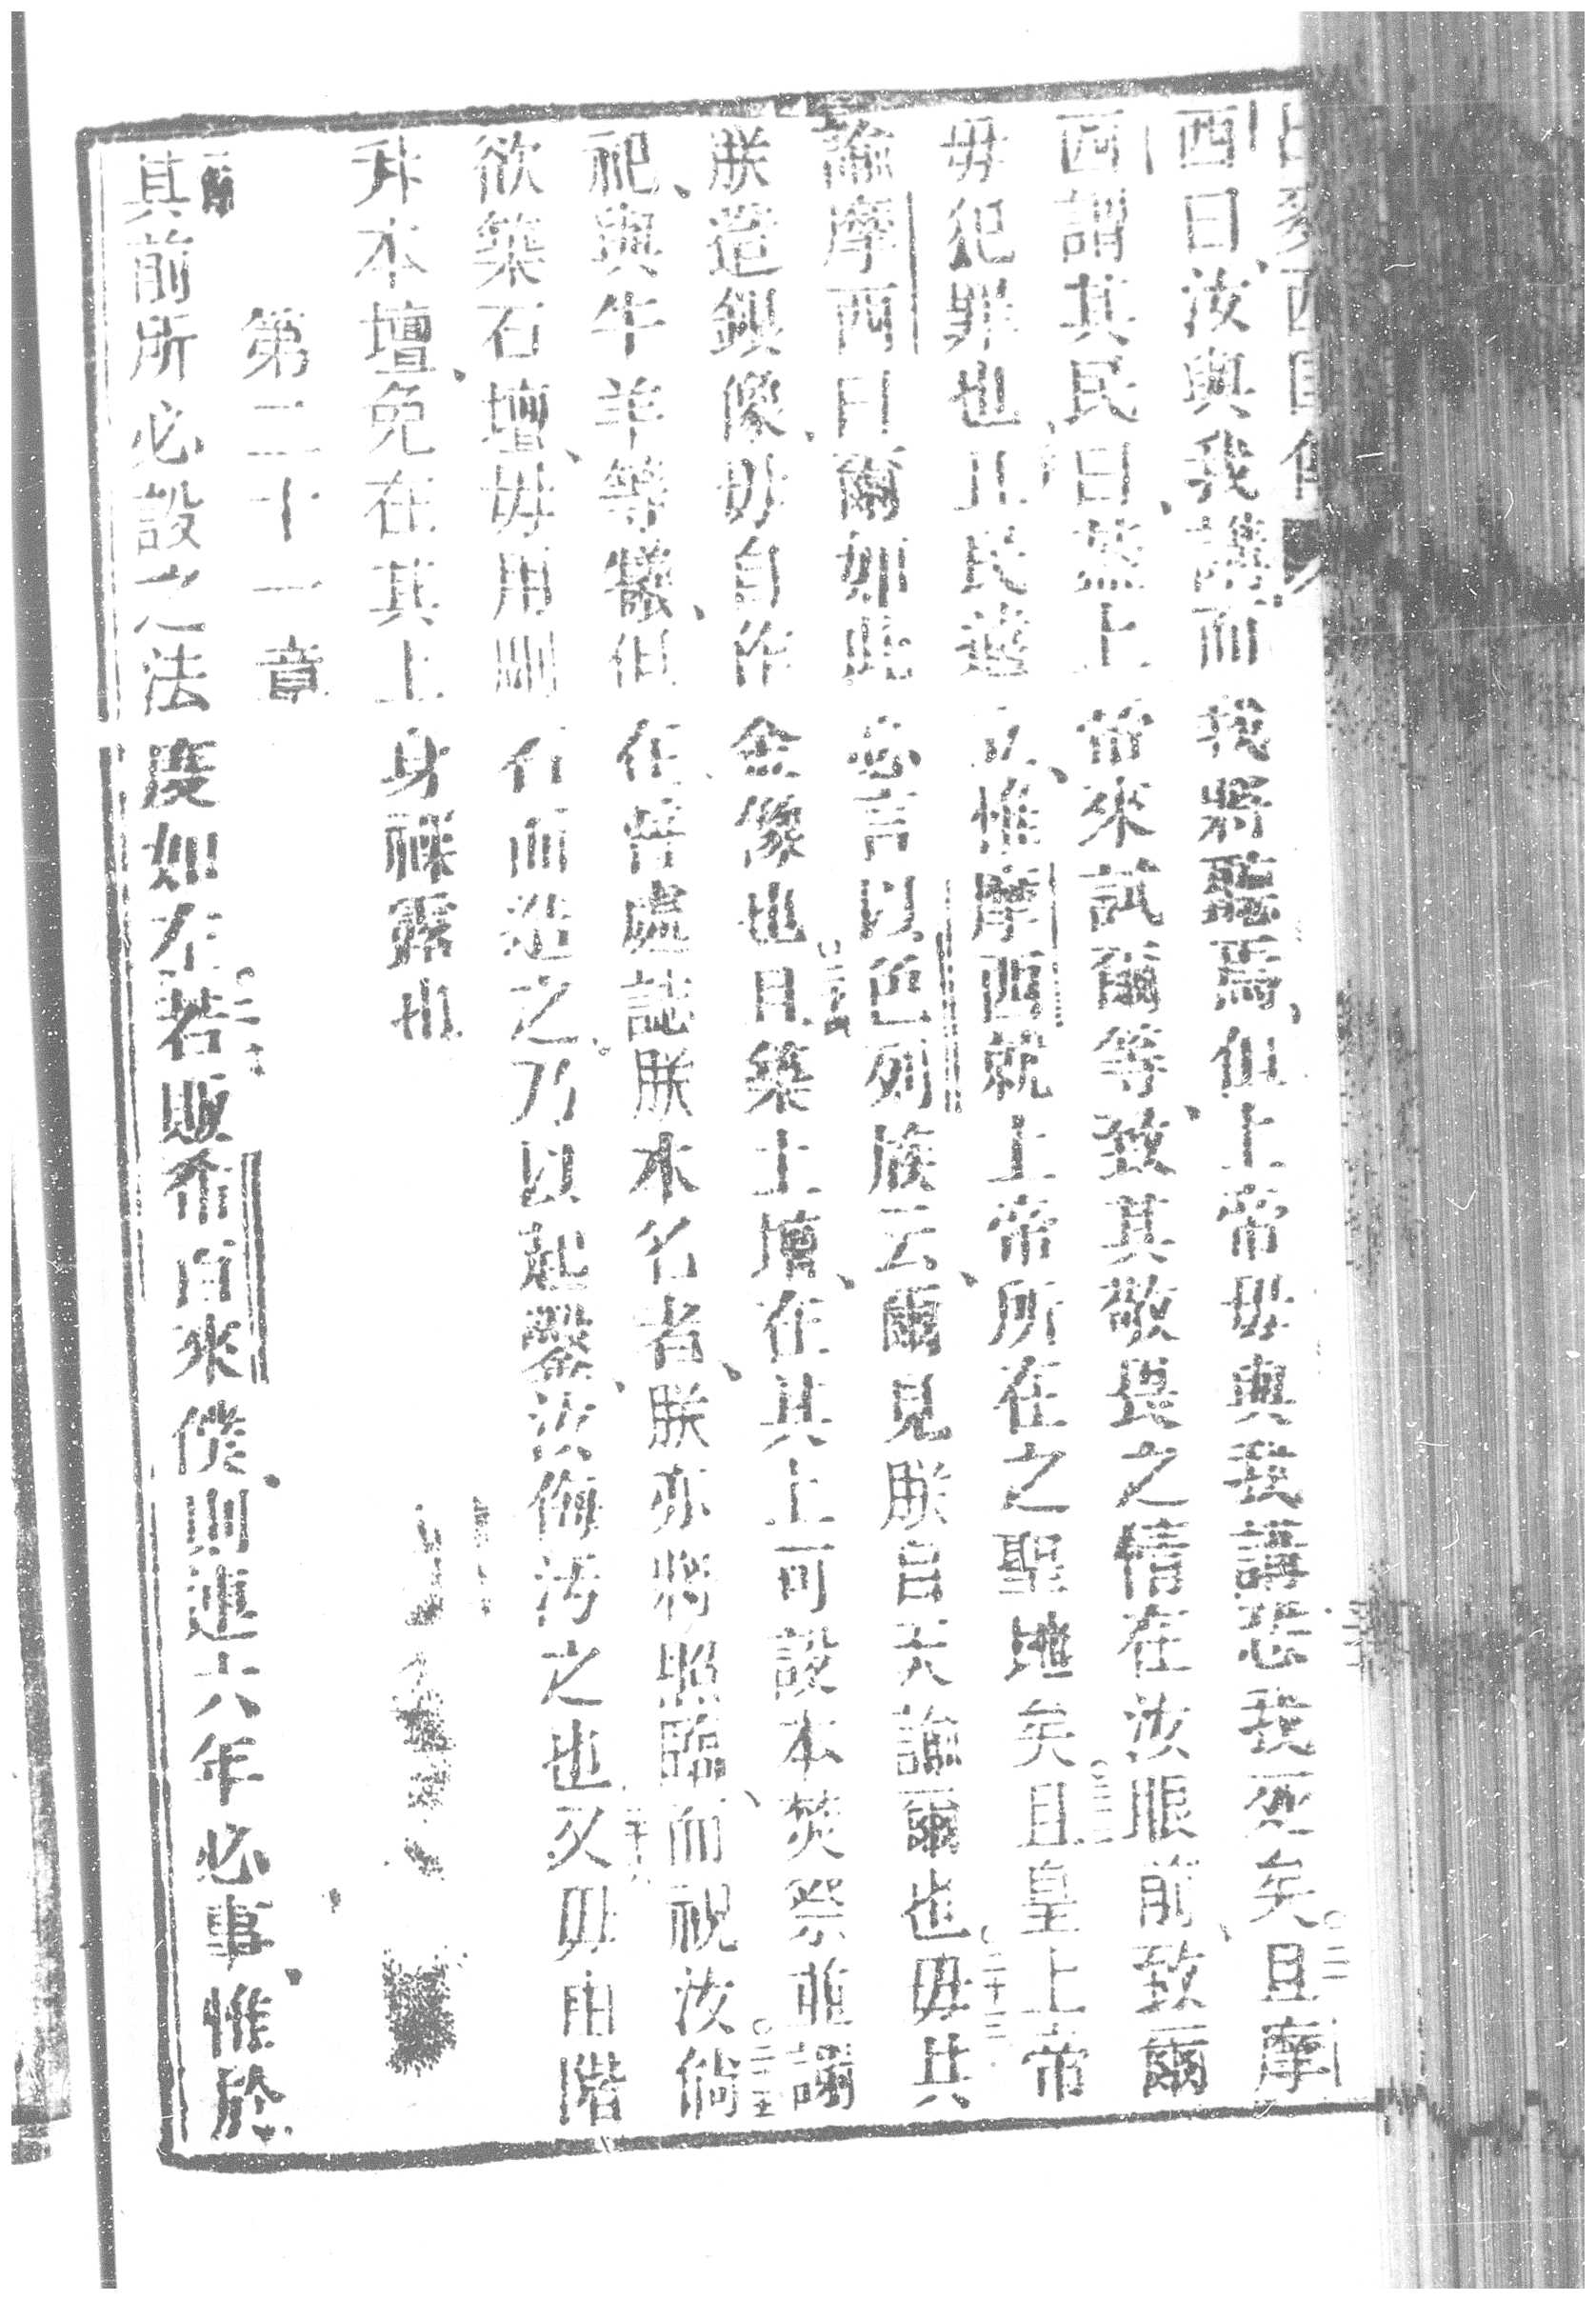 西曰汝與我講而我將聽焉但上帝毋與我講恐我死矣。二十且摩
西謂其民曰蓋上帝來試爾等致其敬畏之情在汝眼前致爾
毋犯罪也。且民遠立惟摩西就上帝所在之聖地矣。二十二且皇上帝
諭摩西曰爾如此必言以色列族云爾見朕自天諭爾也。二十三毋共
朕造銀像毋自作金像也。二十四且築土壇在其上可設本焚祭並謝
祀與牛羊等犧但在普處誌朕本名者朕亦將照臨而視汝。二十五倘
欲築石壇毋用刪石而造之乃以起鑿汝侮污之也。二十六又毋由階
升本壇免在其上身祼露也
第二十一章
其前所必設之法度如左。二若販希百來僕則連六年必事惟於